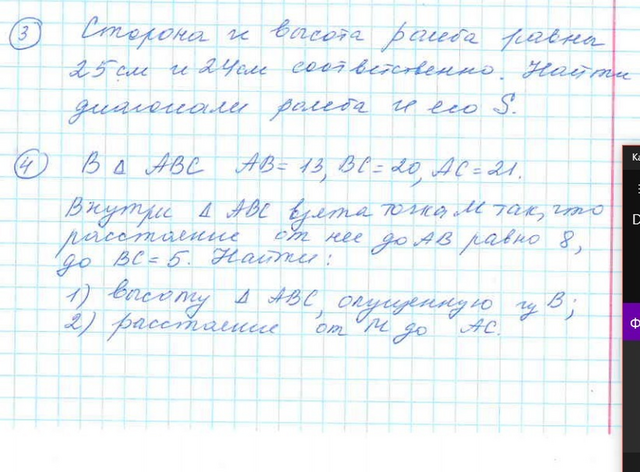 3 Сторона и высота ромба равны
25см и 24см соответственно. Найти
диагонали ромба и его S.
4 В △ ABC AB = 13, BC = 20, AC = 21.
Внутри △ ABC взята точка M так, что
расстояние от нее до AB равно 8,
до BC = 5. Найти:
1) высоту △ ABC, опущенную из B;
2) расстояние от M до AC.
Ка
D
Ф